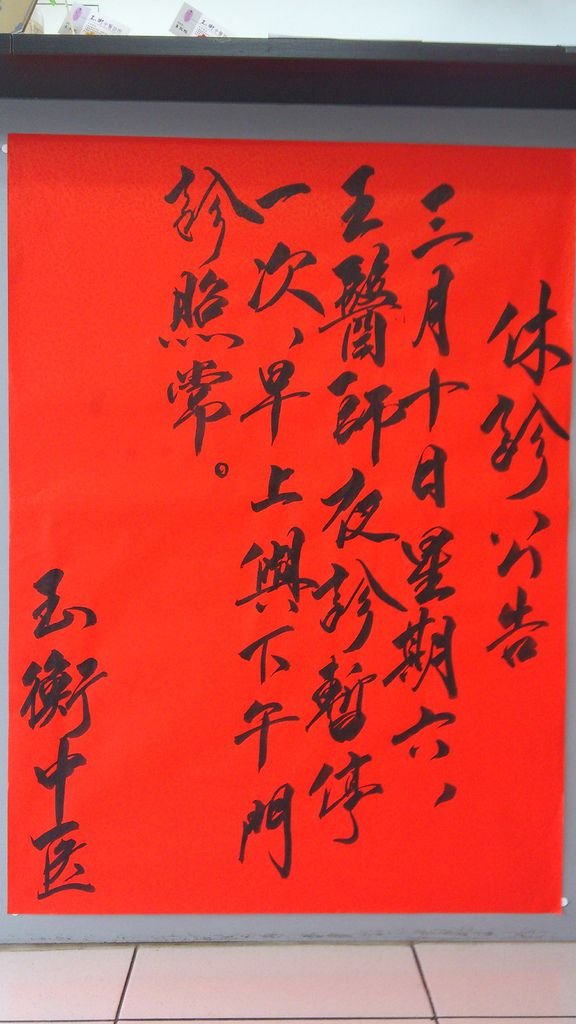 休診公告
三月十日星期六、
王醫師夜診暫停
一次、早上與下午門
診照常。
玉衡中医